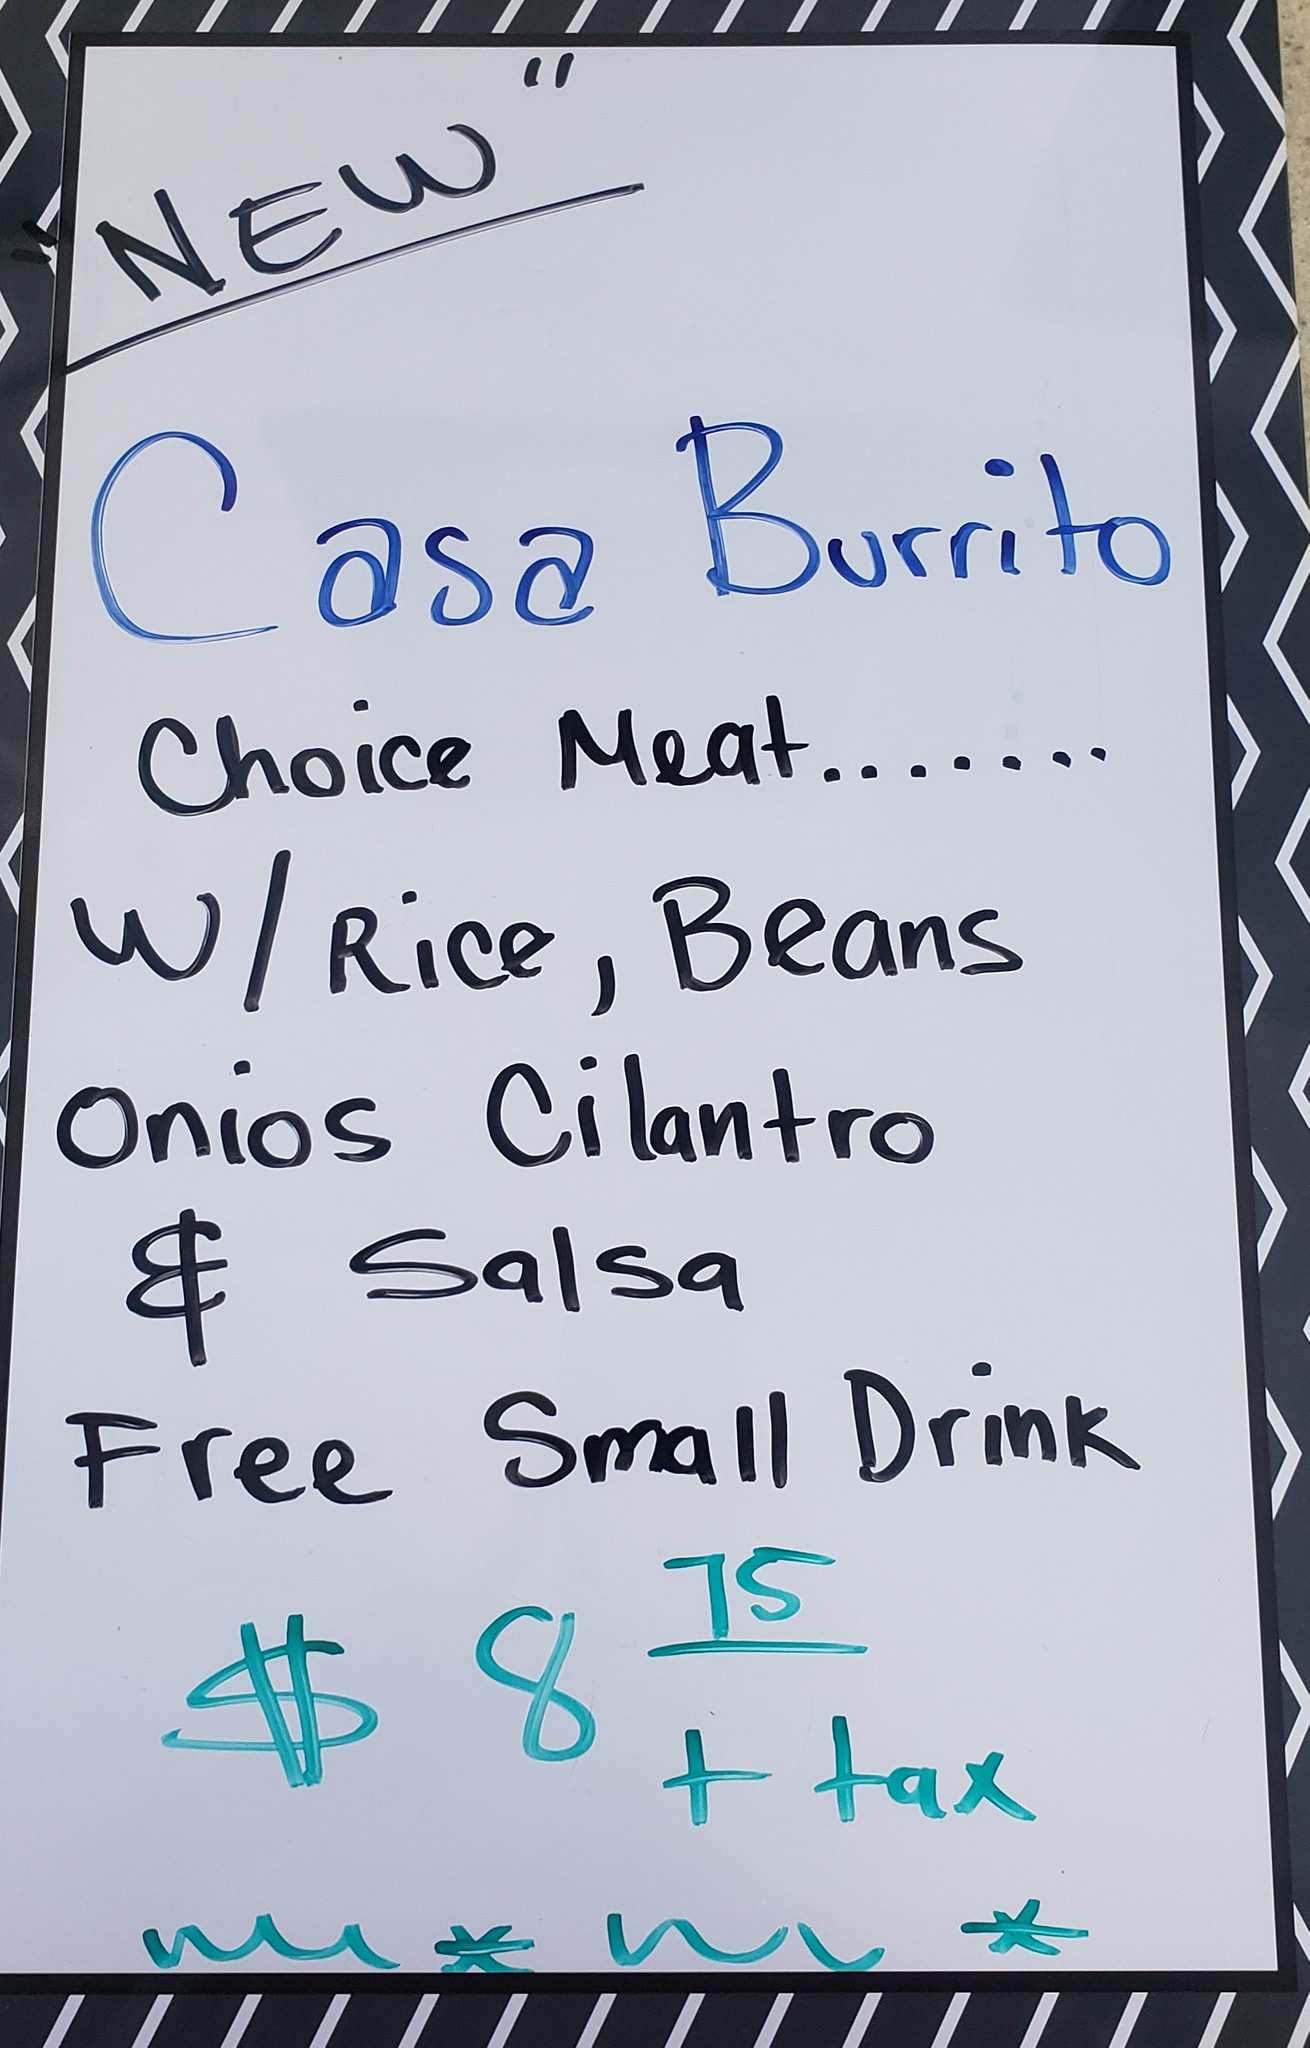 "NEW"
Casa Burrito
Choice Meat.......
W/Rice, Beans
Onios Cilantro
& Salsa
Free Small Drink
$ 8 75
+ tax